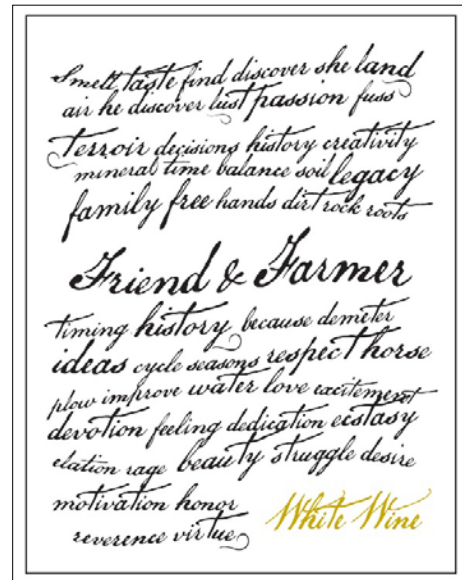 Smell taste find discover she land
air he discover lust passion fuss
Terroir decisions history creativity
mineral time balance soil legacy
family free hands dirt rock roots
Friend & Farmer
timing history because demeter
ideas cycle seasons respect horse
plow improve water love excitement
devotion feeling dedication ecstasy
elation rage beauty struggle desire
motivation honor
reverence virtue
White Wine